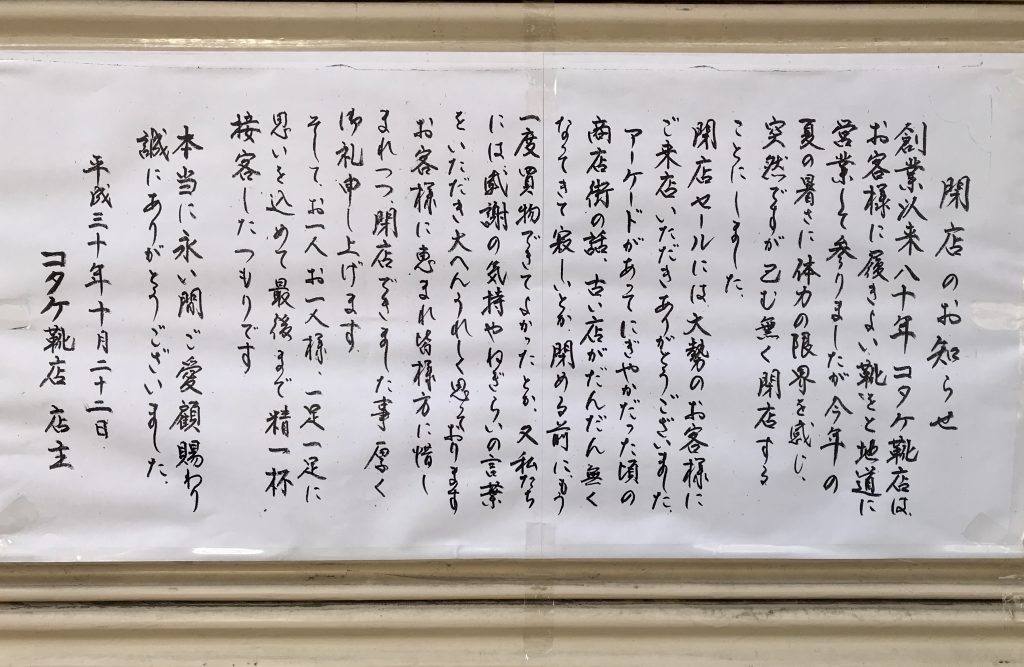 閉店のお知らせ
創業以来八十年コタケ靴店は、
お客様に履きよい靴をと地道に
営業して参りましたが今年の
夏の暑さに体力の限界を感じ、
突然ですが已む無く閉店する
ことにしました。
閉店セールには大勢のお客様に
ご来店いただきありがとうございました。
アーケードがあってにぎやかだった頃の
商店街の話、古い店がだんだん無く
なってきて寂しいとか、閉める前にもう
一度買物できてよかったとか、又私たち
には、感謝の気持やねぎらいの言葉
をいただき大へんうれしく思っております
お客様に恵まれ皆様方に惜し
まれつつ、閉店できました事厚く
御礼申し上げます。
そして、お一人お一人様、一足一足に
思いを込めて最後まで精一杯
接客したつもりです
本当に永い間ご愛顧賜わり
誠にありがとうございました。
平成三十年十月二十二日
コタケ靴店 店主